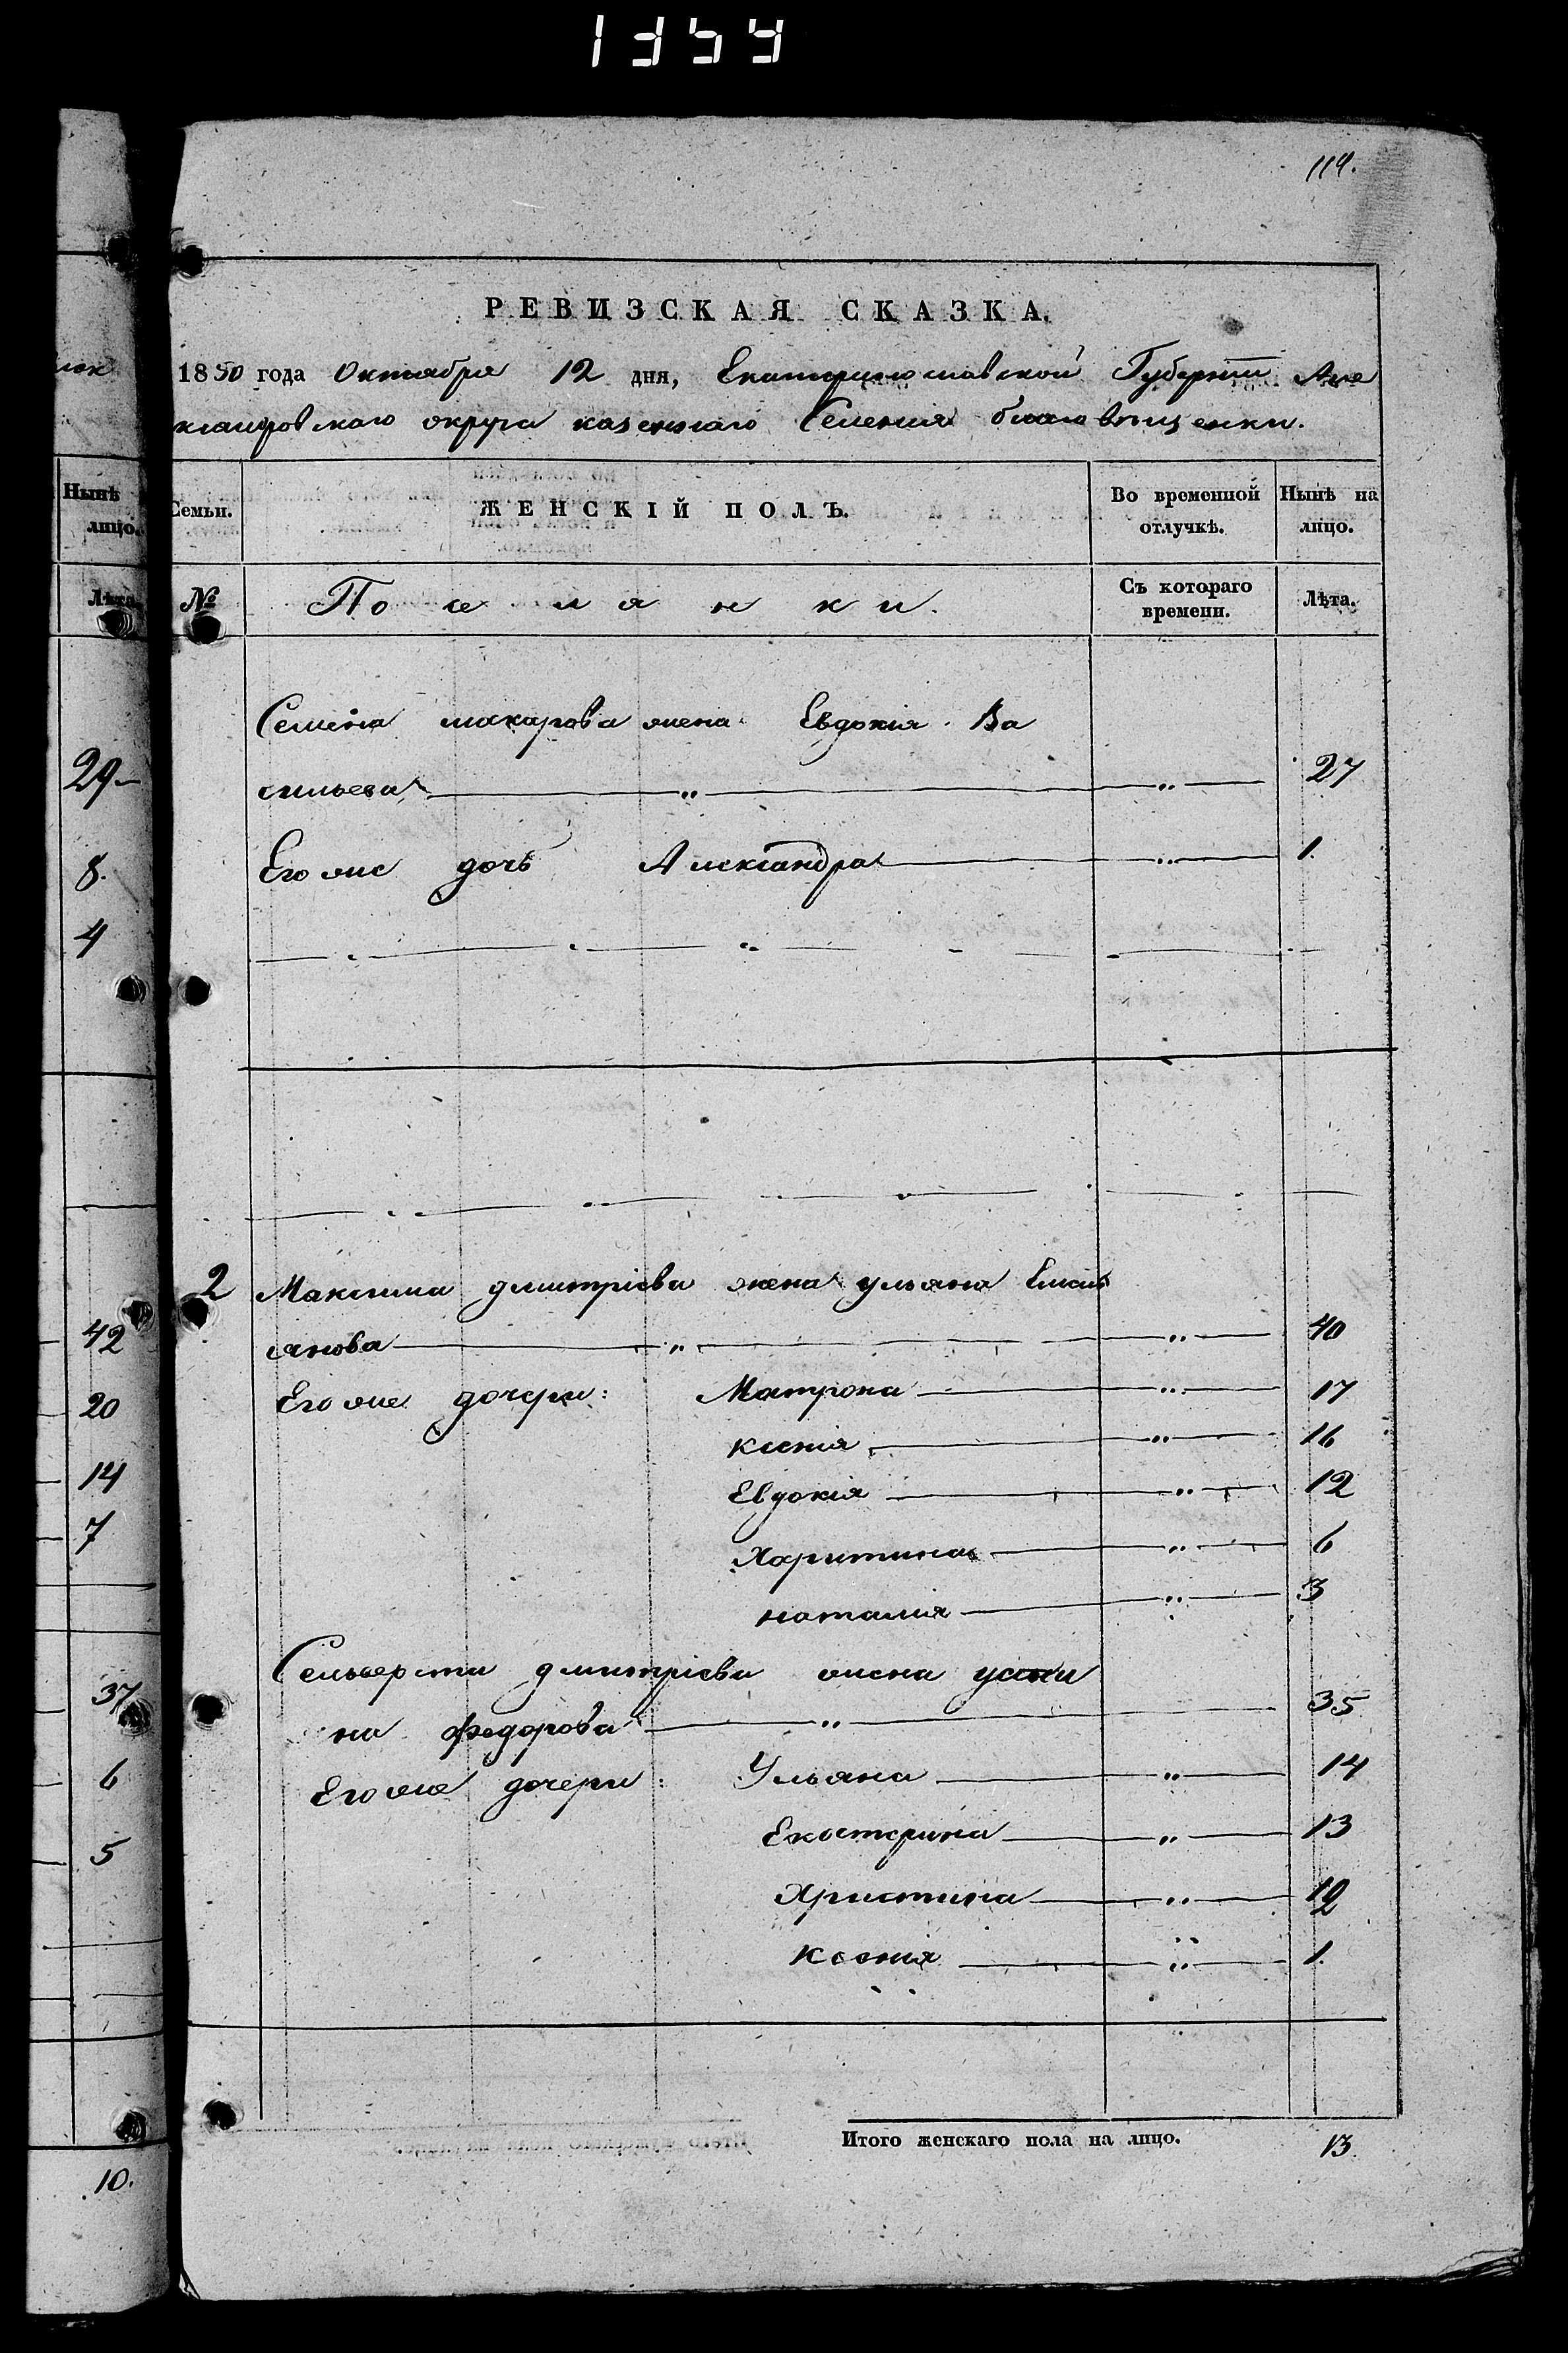 1354
114.
РЕВИЗСКАЯ СКАЗКА.
1850 года Октября 12 дня, Екатеринославской Губерніи Але
ксандровскаго округа казеннаго Селенія благовѣщенки.
Нынѣ
лицо.
Лѣта.
Семьи. ЖЕНСКІЙ ПОЛЪ. Во временной отлучкѣ. Нынѣ на лицо.
№ Поселянки. Съ котораго времени. Лѣта.
Семена макарова жена Евдокія Ва
29 сильева „ „ 27
8. Его же дочь Александра „ 1.
4
2 Максима дмитріева жена ульяна Емель
42 янова „ „ 40
20 Его же дочери: Матрона „ 17
ксенія „ 16
14 Евдокія „ 12
7 Харитина „ 6
наталія „ 3
Сельверста дмитріева жена усти
37 на федорова „ 35
6 Его же дочери: Ульяна „ 14
5 Екатерина „ 13
Христина „ 12
Ксенія „ 1.
Итого женскаго пола на лицо. 13
10.